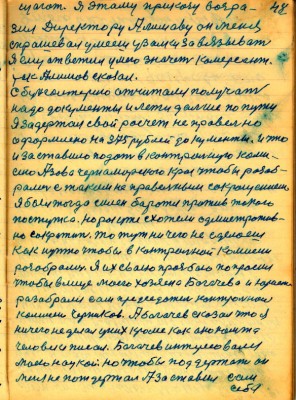 щают. Я этому приказу возра- 48
зил Директору Алимову он меня
спрашевал умееш узолки завязыват
Я ему ответил умею значет
так Алимов сказал.
с бухгалтерию отчитали получать
надо документы и лети дальше по пути
Я задержал свой расчет не правельно
оформлено на 375 рублей документы. и это
и заставило подать в контрольную коми-
сию Азово черноморского края чтобы разоб-
рались с таким не правельным сокрощением
Я был тогда силен бароти против такого
поступка. но раз уже схотели
но сократит. То тут ничего не сделаеш
как нужно чтобы в контрольной Комисии
разобрали. Я их свано пробова попросил
чтобы в лице моего хозяена Богачева и начали
разобрали сам председател контрольной
комисии Чертков. А Богачев сказал что я
ничего не делал у них кроме как
человека писал. Богачев интересовался
моею наукой но чтобы поддержат он
меня не поддержал А заставил сам
себя